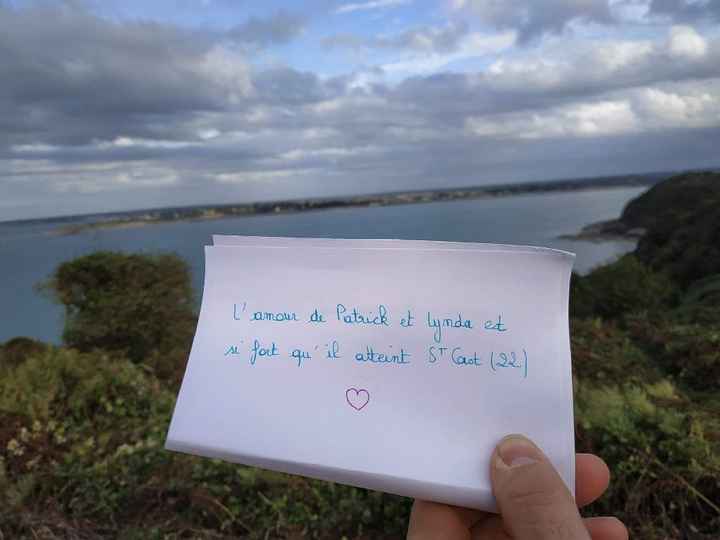 L'amour de Patrick et Lynda est
si fort qu'il atteint S^T Cast (22)